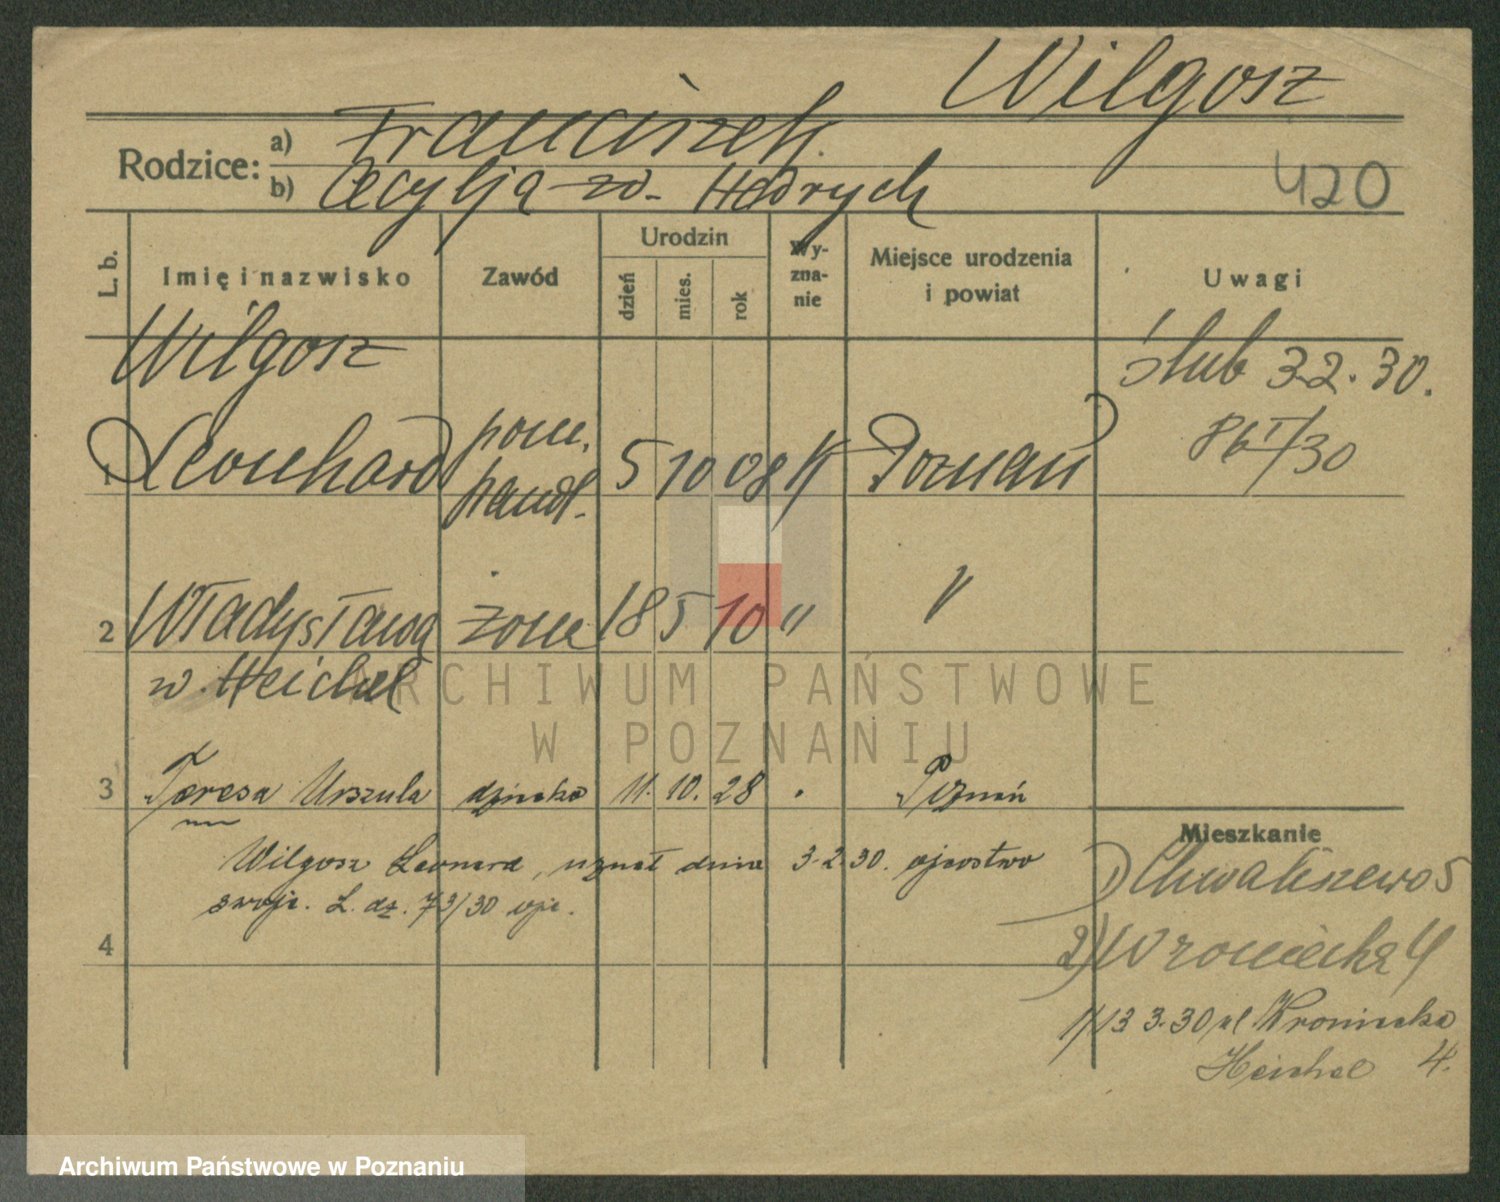 Wilgosz
Rodzice: a) Franciszek
b) Cecylja zd. Hedrych
420
L. b.
Imię i nazwisko
Zawód
Urodzin
dzień
mies.
rok
Wy-
zna-
nie
Miejsce urodzenia
i powiat
Uwagi
Wilgosz
ślub 3.2.30.
1 Leonhard pom. handl. 5 10 08 K Poznań
I/30
2 Władysława żona 18 5 10 " "
w. Heichel
3 Teresa Urszula dziecko 11. 10. 28 . Poznań
Mieszkanie
Wilgosz Leonard, uznał dnia 3.2.30. ojcostwo
swoje. L. dz. 73/30 ojc.
1) Chwaliszewo 5
4
2) Wroniecka 4
1/13 3.30 ul Wroniecka
Heichel 4.
ARCHIWUM PAŃSTWOWE
W POZNANIU
Archiwum Państwowe w Poznaniu